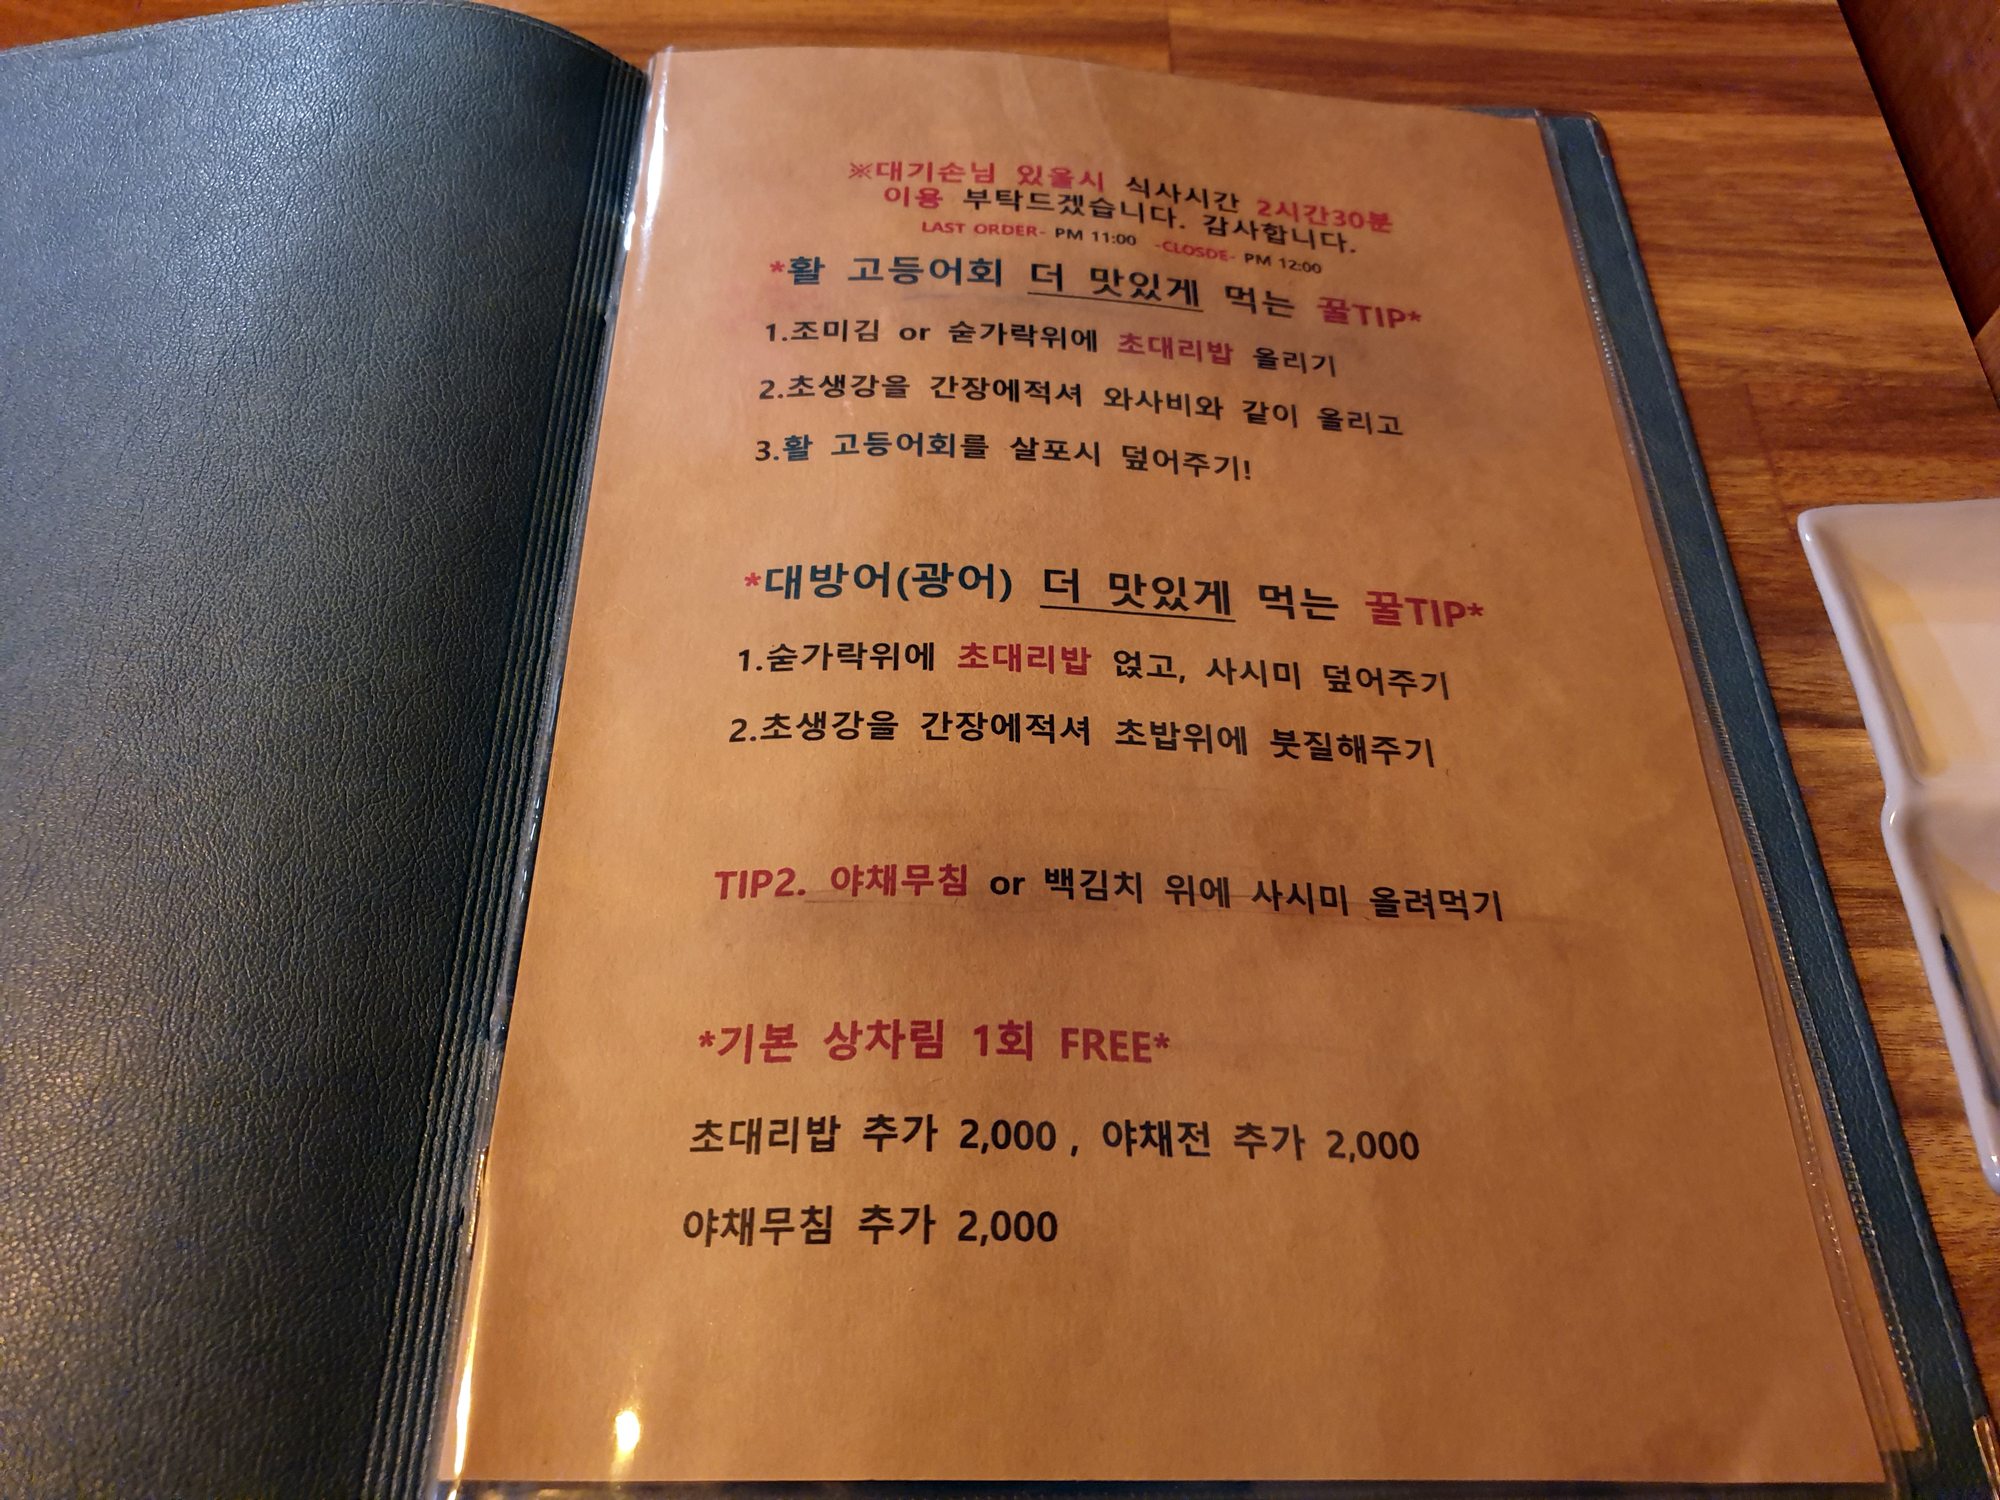 ※대기손님 있을시 식사시간 2시간30분
이용 부탁드겠습니다. 감사합니다.
LAST ORDER- PM 11:00 -CLOSDE- PM 12:00
*활 고등어회 더 맛있게 먹는 꿀TIP*
1.조미김 or 숟가락위에 초대리밥 올리기
2.초생강을 간장에적셔 와사비와 같이 올리고
3.활 고등어회를 살포시 덮어주기!
*대방어(광어) 더 맛있게 먹는 꿀TIP*
1.숟가락위에 초대리밥 얹고, 사시미 덮어주기
2.초생강을 간장에적셔 초밥위에 붓질해주기
TIP2. 야채무침 or 백김치 위에 사시미 올려먹기
*기본 상차림 1회 FREE*
초대리밥 추가 2,000 , 야채전 추가 2,000
야채무침 추가 2,000